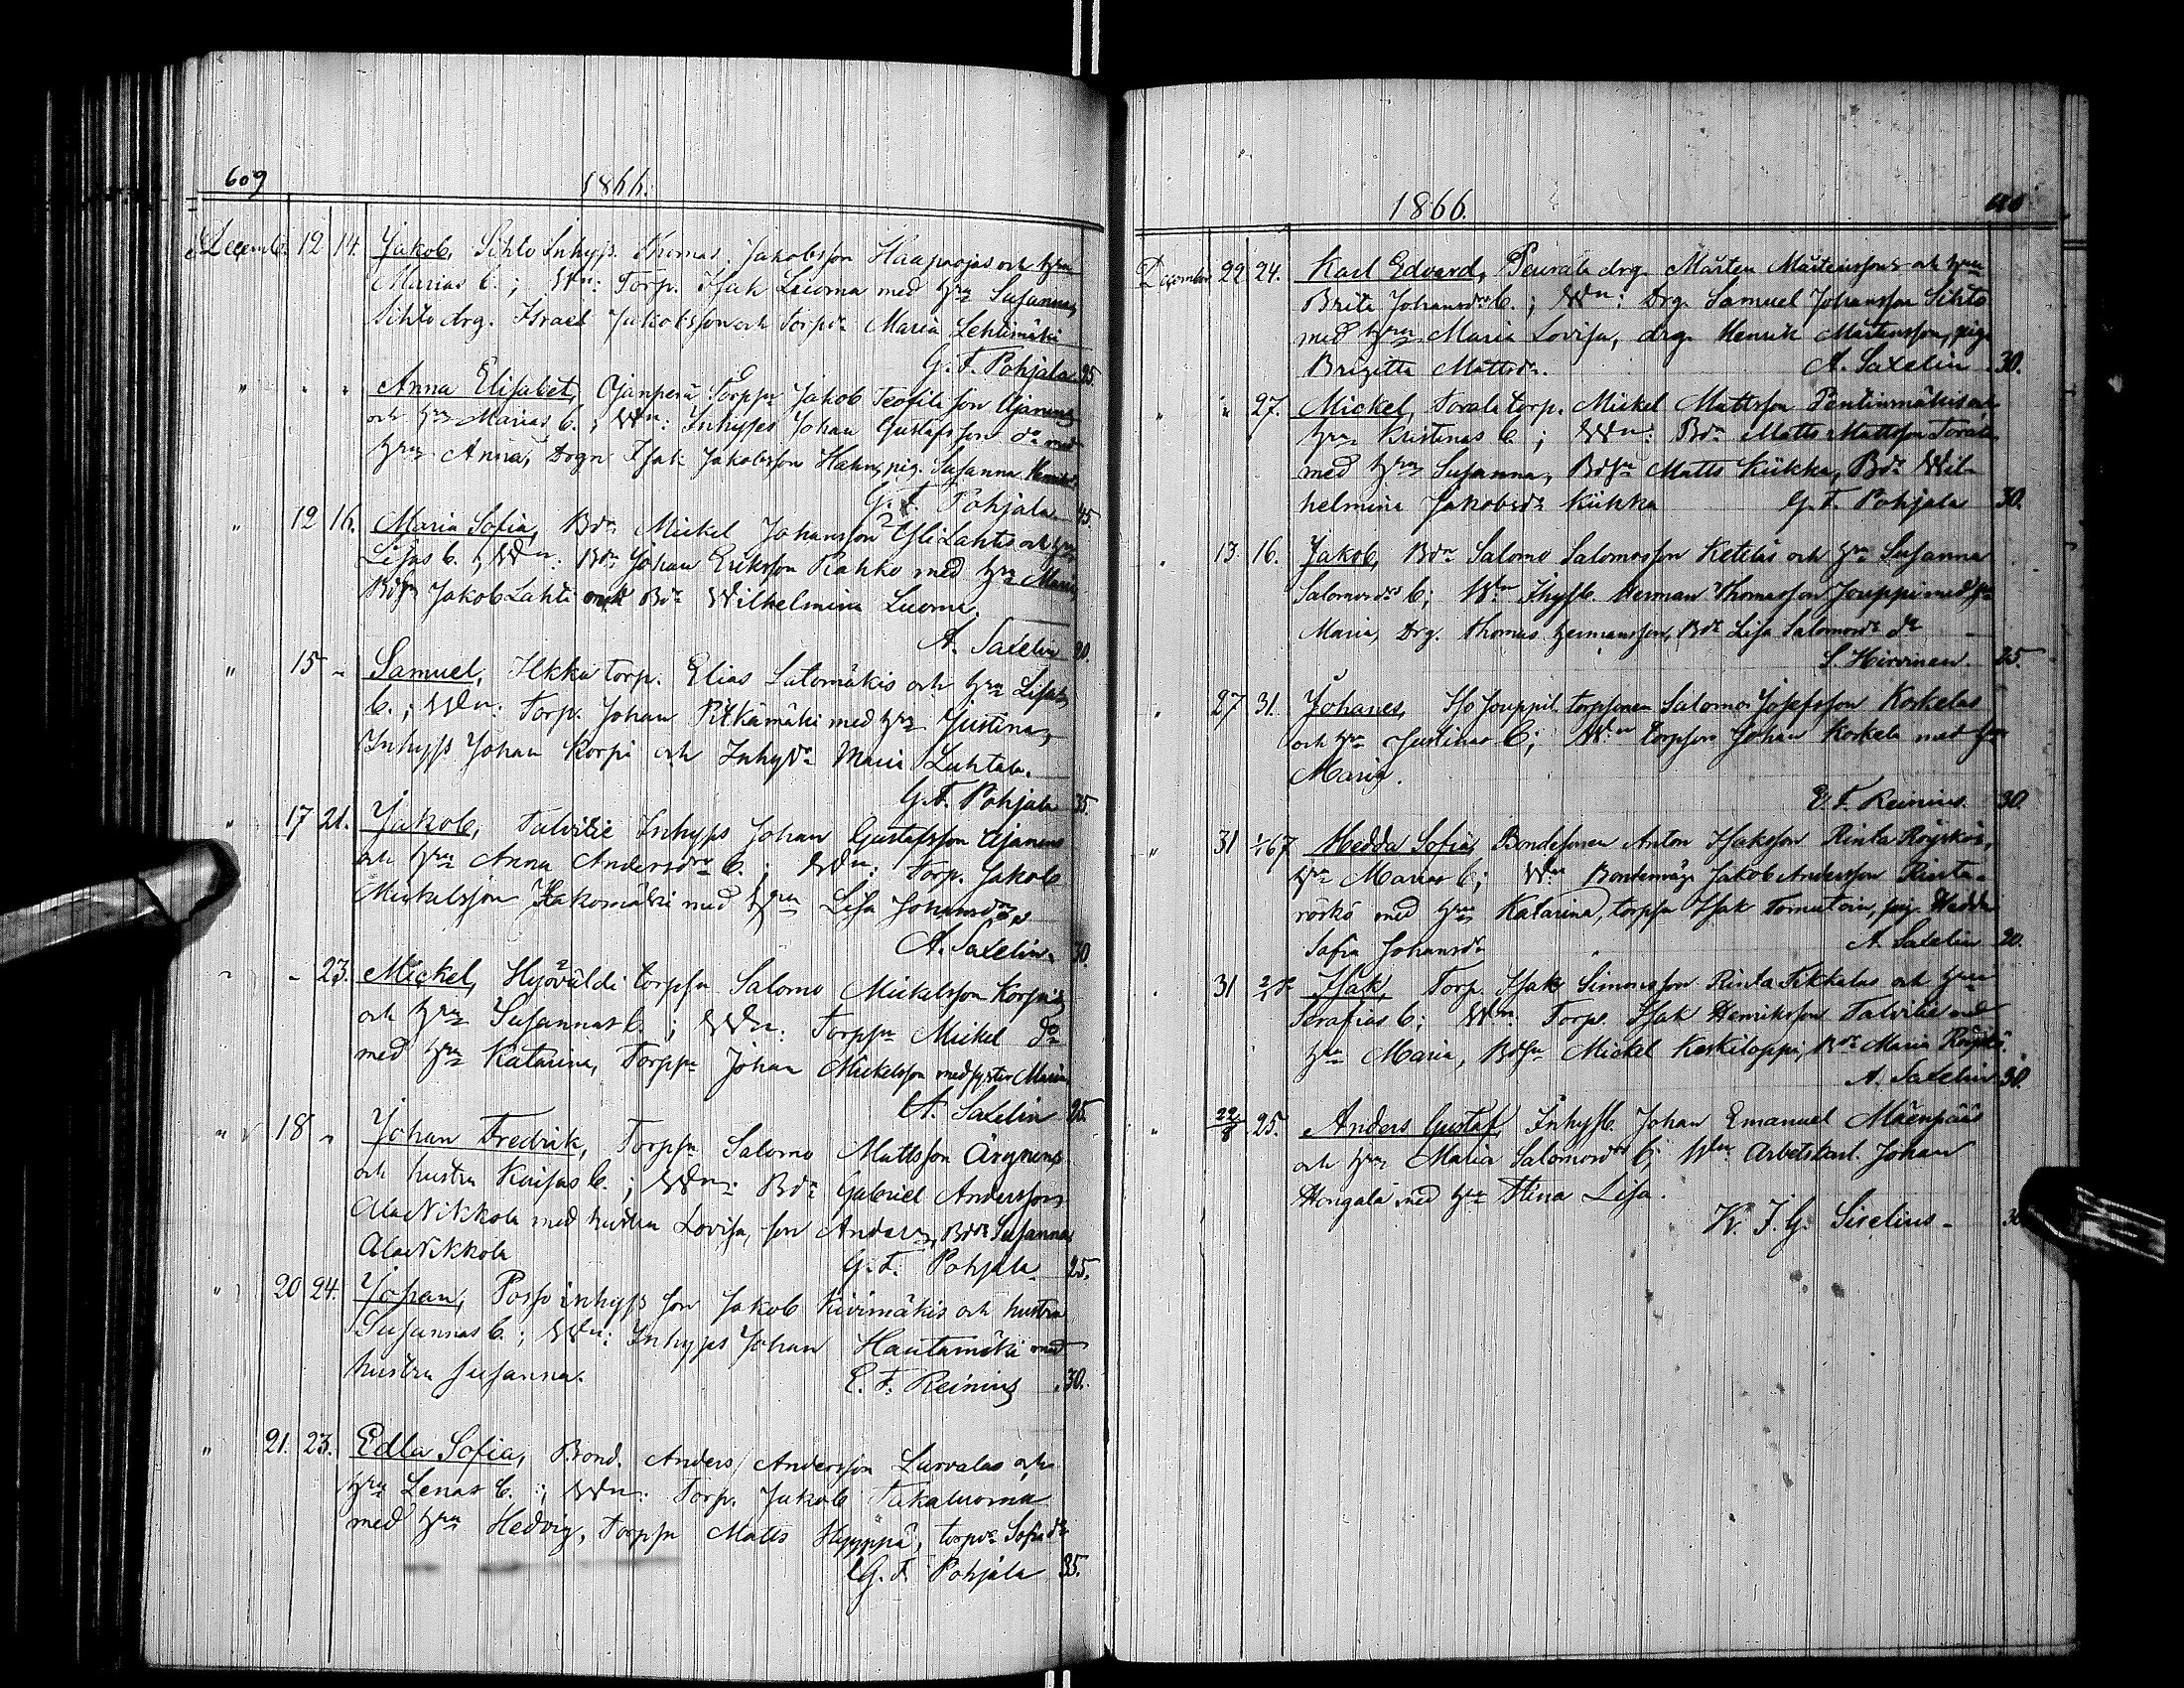 609
1866.
Decemb. 12 14. Jakob, Sihto Inhyss. Thomas Jakobsson Haapaojas och hru
Marias b.; Wn: Torp. Isak Luoma med hru Susanna,
Sihto drg. Israel Jakobsson och Torpdr Maria Lehtimäki
G. F. Pohjala 25.
" " " Anna Elisabet, Ojanperä Torpsn Jakob Teofilsson
och hru Marias b.; Wn: Inhyses Johan Gustafsson do med
hru Anna, Drgn Isak Jakobsson Hahn, pig. Susanna
G. F. Pohjala 45.
" 12 16. Maria Sofia, Bdn Mickel Johansson Yli Lahtis och hru
Lisas b.; Wn: Bdn Johan Eriksson Rahko med hru Maria,
Bdsn Jakob Lahti med Bdr Wilhelmina Luoma.
A. Saxelin 20.
" 15 " Samuel, Ilkka torp. Elias Latomäkis och hru Lisas
b.; Wn: Torp. Johan Pitkämäki med hru Justina,
Inhyss Johan Korpi och Inhydr Maria Luhtala.
G. F. Pohjala 35.
" 17 21. Jakob, Talvitie Inhyss Johan Gustafsson Ojanens
och hru Anna Andersdr b.; Wn: Torp. Jakob
Mickelsson Hakomäki med hru Lisa Johansdr
A. Saxelin 30.
" " 23. Mickel, Hyövälti torpsn Salomo Mickelsson Korpis
och hru Susannas b.; Wn: Torpsn Mickel do
med hru Katarina, Torpsn Johan Mickelsson med syster Maria
A. Saxelin 25.
" 18 " Johan Fredrik, Torpsn Salomo Mattsson
och hustru Kaisas b.; Wn: Bdn Gabriel Andersson
Ala Nikkola med hustru Lovisa, son Anders, Bdr Susanna
Ala Nikkola G. F. Pohjala 25.
" 20 24. Johan, Posso inhyss son Jakob Kivimäkis och hustru
Susannas b.; Wn: Inhyses Johan Hautamäki med
hustru Susanna. E. F. Reinius 30.
" 21. 23. Edla Sofia, Bond. Anders Andersson Lurvalas och
hru Lenas b.; Wn: Torp. Jakob Takaluoma
med hru Hedvig, Torpsn Matts Hyyppä, torpdr Sofia do
G. F. Pohjala 35.
1866.
610
December 22 24. Karl Edvard, Peurala drg. Mårten Mårtenssons och hru
Brita Johansdrs b.; Wn: Drg. Samuel Johansson Sihto
med hru Maria Lovisa, drg. Henrik Mårtensson, pig.
Brigitta Mattsdr. A. Saxelin 30.
" " 27. Mickel, Torala torp. Mickel Mattsson Pentinmäkis och
hru Kristinas b.; Wn: Bdn Matts Mattsson Torala
med hru Susanna, Bdsn Matts Kiikka, Bdr Wil-
helmina Jakobsdr Kiikka G. F. Pohjala 30.
" 13. 16. Jakob, Bdn Salomo Salomosson Ketolas och hru Susanna
Salomonsdrs b; Wn Ihysb. Herman Thomasson Jouppi med hru
Maria, Drg. Thomas Hermansson, Bdr Lisa Salomonsdr do
S. Hirvinen. 25.
" 27 31. Johanes, Iso Jouppil. torpsonen Salomo Josefsson Koskelas
och hru Justinas b; Wn torpson Johan Koskela med hru
Maria.
E. F. Reinius. 30.
" 31 1/1 67 Hedda Sofia, Bondesonen Anton Isaksson Rinta Röyskös,
hru Marias b; Wn Bondemåg Jakob Andersson Rinta-
röskö med hru Katarina, torpsn Isak, pig. Hedda
Sofia Johansdr A. Saxelin 20.
" 31 2/1 Isak, Torp. Isak Simonsson Rinta Tikkalas och hru
Serafias b; Wn. Torp. Isak Henriksson Talvitie med
hru Maria, Bdsn Mickel Keskiloppi, Bdr Maria Röyskö.
A. Saxelin 30.
" 22/8 25. Anders Gustaf, Inhysb. Johan Emanuel Mäenpääs
och hru Maria Salomonsdrs b; Wn. Arbetskarl. Johan
Hongala med hru Stina Lisa.
K. J. G. Sirelius. 30